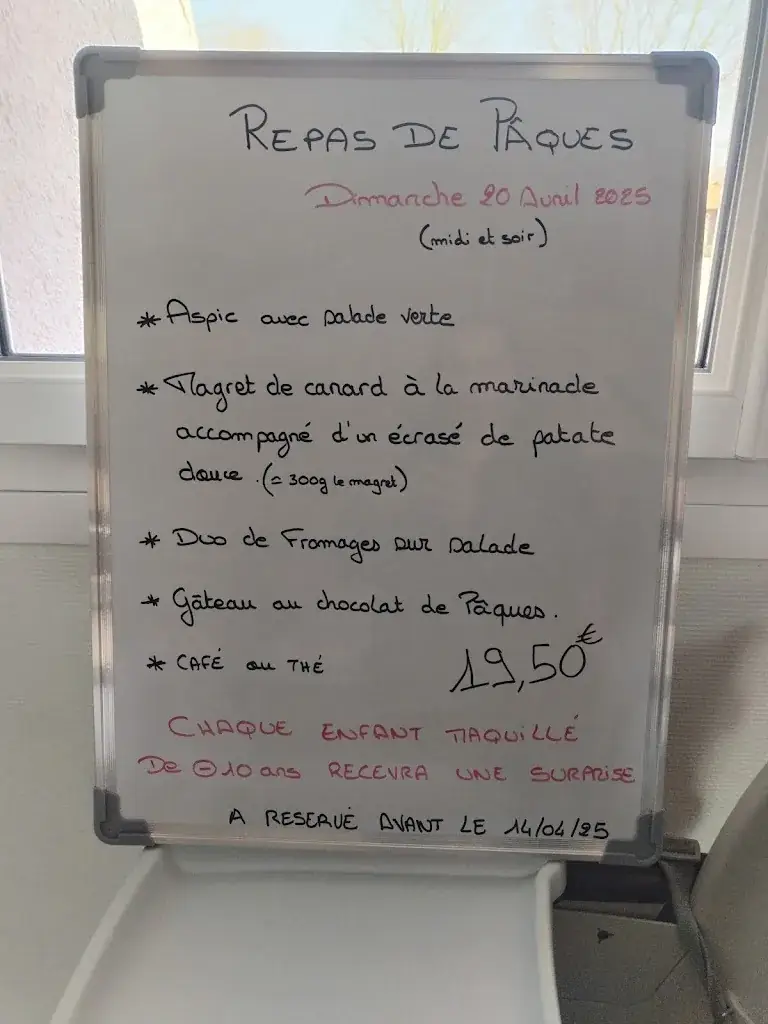 REPAS DE PÂQUES
Dimanche 20 Avril 2025
(midi et soir)
* Aspic avec salade verte
* Magret de canard à la marinade
accompagné d'un écrasé de patate
douce. (= 300g le magret)
* Duo de Fromages sur salade
* Gâteau au chocolat de Pâques.
* CAFÉ ou THÉ
19,50€
CHAQUE ENFANT MAQUILLÉ
De ⊖10 ans RECEVRA UNE SURPRISE
A RESERVÉ AVANT LE 14/04/25